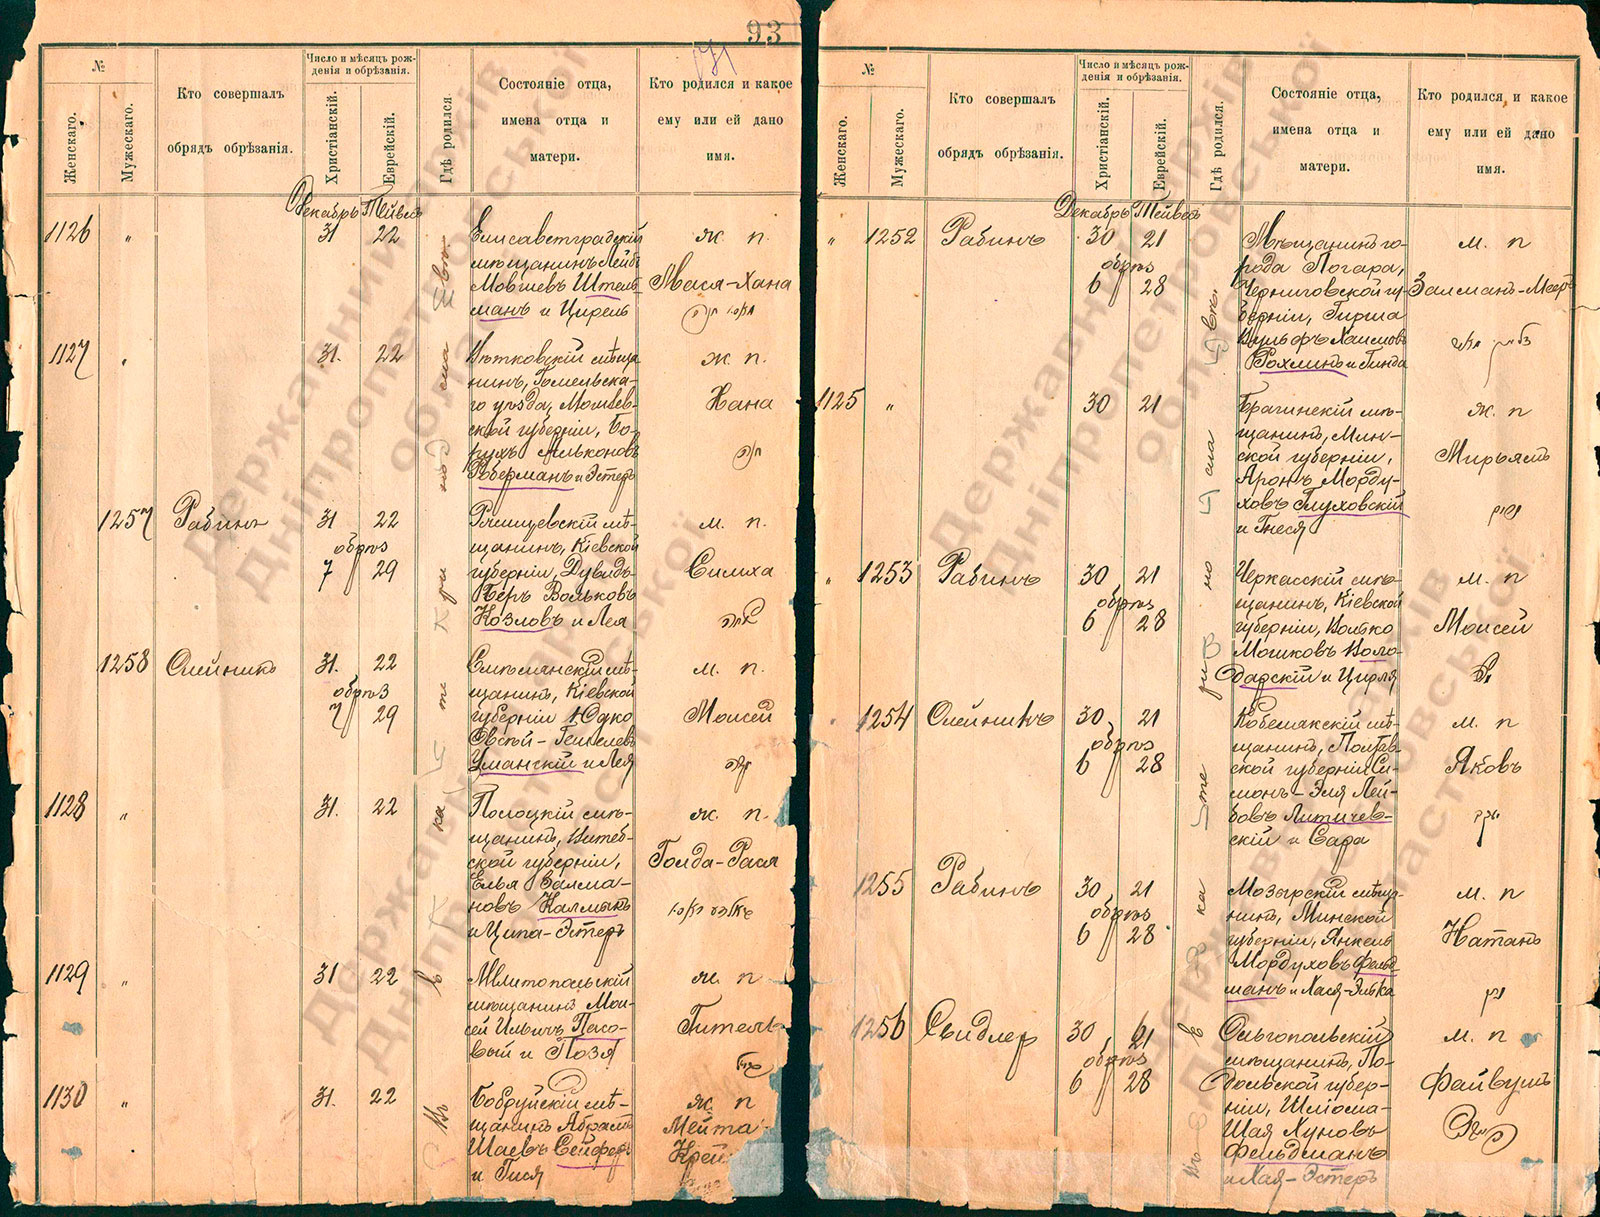 93
№
Женскаго.
Мужескаго.
Кто совершалъ
обрядъ обрѣзанія.
Число и мѣсяцъ рож-
денія и обрѣзанія.
Христіанскій.
Еврейскій.
Гдѣ родился
Состояніе отца,
имена отца и
матери.
Кто родился и какое
ему или ей дано
имя.
Декабрь Тейвесъ
1126 " 31 22
Елисаветградскій
мѣщанинъ Лейбъ
Мовшевъ Штель-
манъ и Цирель
ж. п.
Мася-Хана
1127 " 31. 22
мѣща-
нинъ, Гомельска-
го уѣзда, Могилев-
ской губерніи, Бо-
рухъ
и Эстеръ
ж. п.
Хана
חנה
1257 Рабинъ 31 22
обрѣз
7 29
мѣ-
щанинъ, Кіевской
губерніи, Дувидъ-
Беръ Вольковъ
Козловъ и Лея
м. п.
Симха
שמחה
1258 Олейникъ 31. 22
обрѣз
7 29
мѣ-
щанинъ, Кіевской
губерніи Юдко
Уманскій и Лея
м. п.
Моисей
משה
1128 " 31. 22
Полоцкій мѣ-
щанинъ, Витеб-
ской губерніи,
Элья Залма-
новъ Калмыкъ
и Ципа-Эстеръ
ж. п.
Голда-Рася
1129 " 31 22
Мелитопольскій
мѣщанинъ Мои-
сей Ильичъ Пасо-
вый и Позя
ж. п
Гитель
גיטל
1130 " 31. 22
Бобруйскій мѣ-
щанинъ Абрамъ
Шаевъ Сейферъ
и Гися
ж. п
Мейта-
Крей
№
Женскаго.
Мужескаго.
Кто совершалъ
обрядъ обрѣзанія.
Число и мѣсяцъ рож-
денія и обрѣзанія.
Христіанскій.
Еврейскій.
Гдѣ родился.
Состояніе отца,
имена отца и
матери.
Кто родился и какое
ему или ей дано
имя.
Декабрь Тейвесъ
" 1252 Рабинъ 30 21
обрѣз
6 28
Мѣщанинъ го-
рода Погара,
Черниговской гу-
берніи, Гирша
Вульфъ Хаимовъ
Рохлинъ и Гинда
м. п
Залманъ-Мееръ
1125 " 30 21
Брагинскій мѣ-
щанинъ, Мин-
ской губерніи,
Аронъ Морду-
ховъ Глуховскій
и Гнеся
ж. п
Мирьямъ
מרים
" 1253 Рабинъ 30 21
обрѣз
6 28
Черкасскій мѣ-
щанинъ, Кіевской
губерніи,
Мошковъ Воло-
дарскій и Цирля
м. п
Моисей
משה
1254 Олейникъ 30 21
обрѣз
6 28
Кобелякскій мѣ-
щанинъ, Полтав-
ской губерніи Си-
монъ-Эля Лей-
бовъ Литичев-
скій и Сара
м. п
Яковъ
יעקב
1255 Рабинъ 30 21
обрѣз
6 28
Мозырскій мѣща-
нинъ, Минской
губерніи, Янкель
Мордуховъ Фельд-
манъ и Хася-Элька
м. п
Натанъ
נתן
1256 Свидлер 30 21
обрѣз
6 28
Ольгопольскій
мѣщанинъ, По-
дольской губер-
ніи, Шліома-
Шая Хуновъ
Фельдманъ
и Хая-Эстеръ
м. п
Файвушъ
Въ г. Екатеринославѣ
Державний архів
Дніпропетровської
області